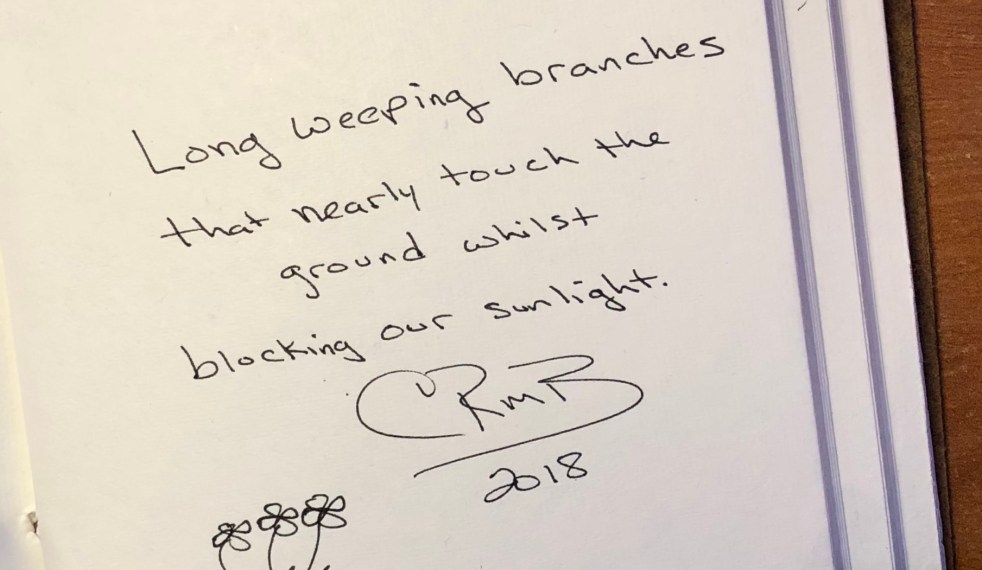 Long weeping branches
that nearly touch the
ground whilst
blocking our sunlight.
CRMB
2018